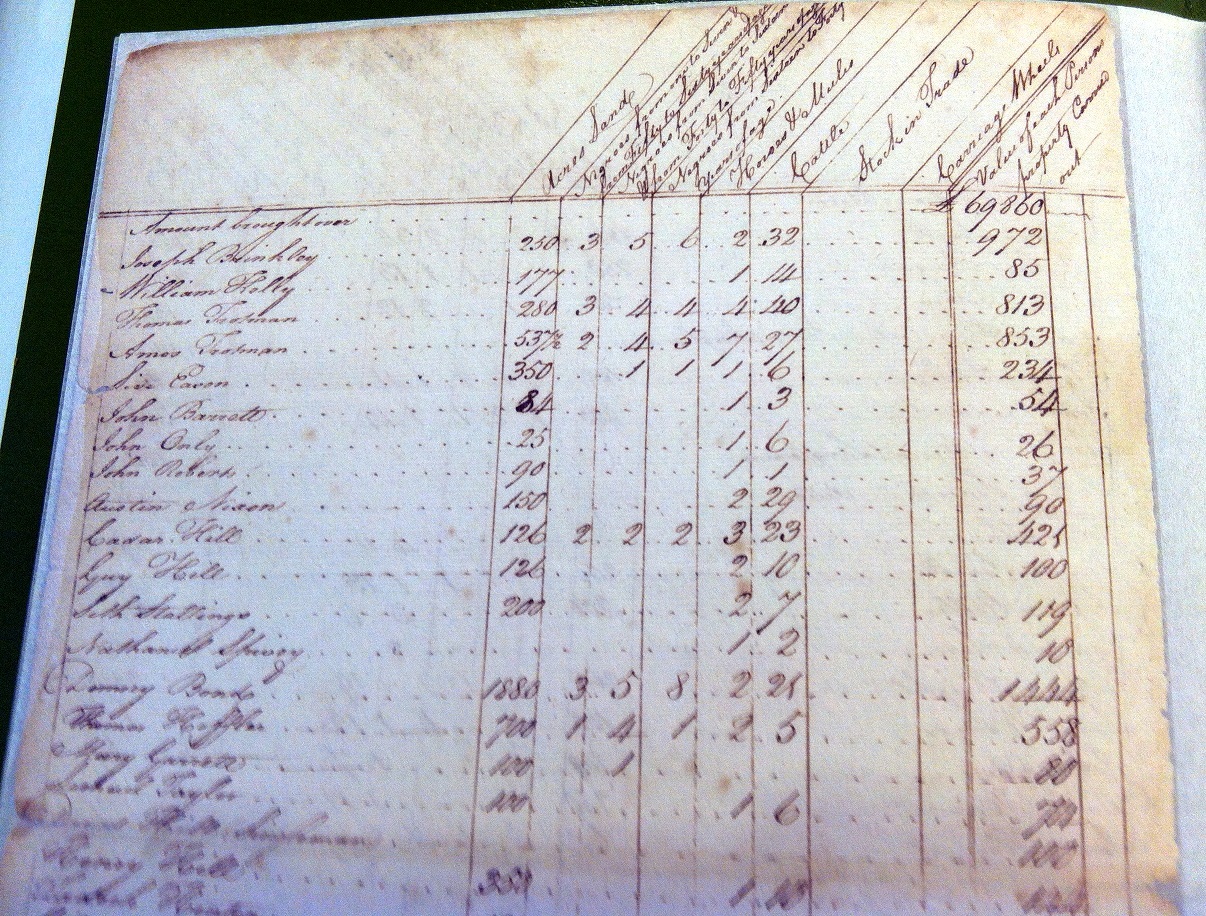 Acres Land
Negroes from one to Seven &
from Fifty to Sixty years of age
Negroes from Seven to Sixteen
& from Forty to Fifty years of age
Negroes from Sixteen to Forty
Years of age
Horses & Mules
Cattle
Stock in Trade
Carriage Wheels
Value of each Persons
property Carried
out
Amount brought over £ 69860
Joseph Brinkley 250 3 5 6 2 32 972
William Kelly 177 1 14 85
Thomas Trotman 280 3 4 4 4 40 813
Amos Trotman 537½ 2 4 5 7 27 853
350 1 1 1 6 234
John Barrett 84 1 3 54
John Only 25 1 6 26
John Roberts 90 1 1 37
Austin Nixon 150 2 29 90
Hill 126 2 2 2 3 23 421
Guy Hill 126 2 10 100
Seth Stallings 200 2 7 119
Nathan Spivey 1 2 10
Demsy Bond 1880 3 5 8 2 21 1444
Thomas Hoffler 700 1 4 1 2 5 558
Mary Garrett 100 1 80
Taylor 100 1 6 70
Hill 100
Henry Hill 351 1 13